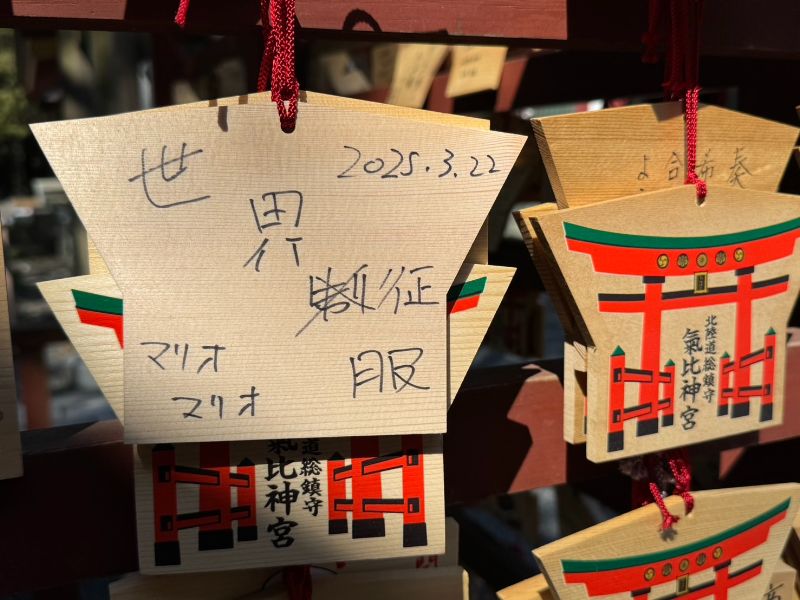 2025.3.22
世
界
征
服
マリオ
マリオ
総鎮守
氣比神宮
奏
希
合
よ
北陸道総鎮守
氣比神宮